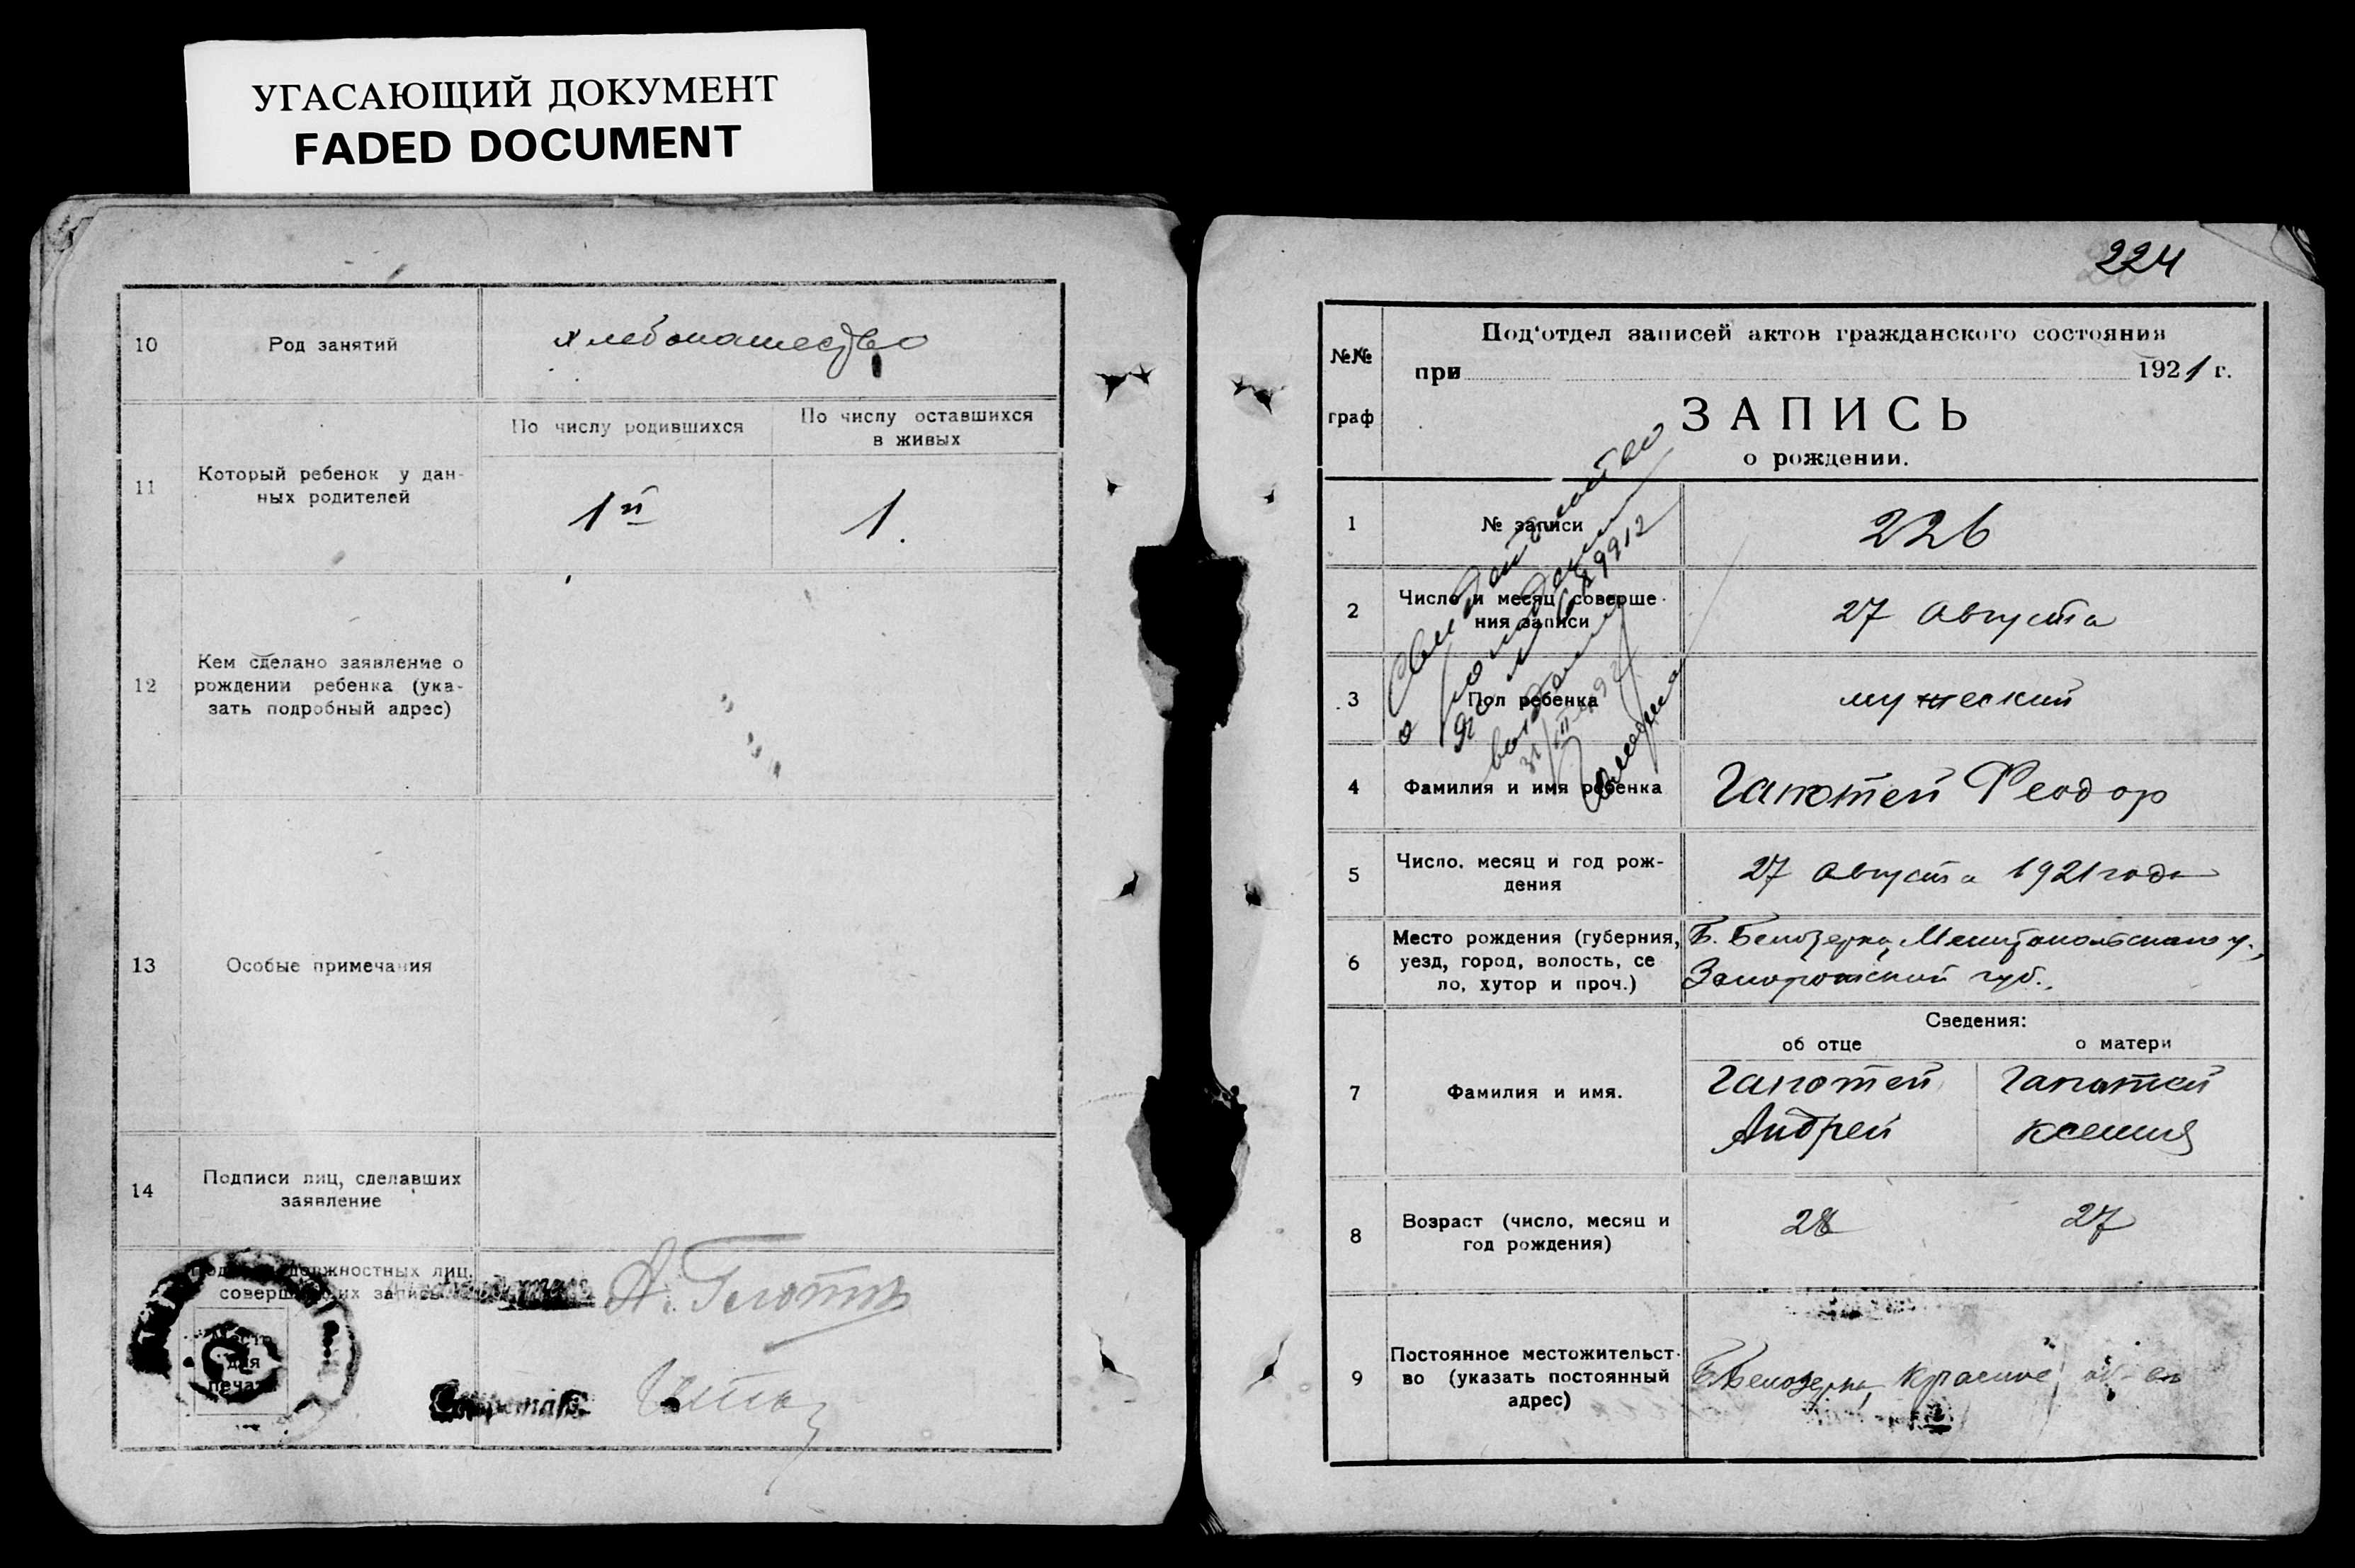 УГАСАЮЩИЙ ДОКУМЕНТ
FADED DOCUMENT
10
Род занятий
хлебопашество
11
Который ребенок у дан-
ных родителей
По числу родившихся
По числу оставшихся
в живых
1й
1.
12
Кем сделано заявление о
рождении ребенка (ука-
зать подробный адрес)
13
Особые примечания
14
Подписи лиц, сделавших
заявление
должностных лиц,
запись
Место
для
печати
А.
224
№№
граф
Под'отдел записей актов гражданского состояния
при 1921 г.
ЗАПИСЬ
о рождении.
1
№ записи
226
2
Число и месяц соверше-
ния записи
27 Августа
3
Пол ребенка
мужеский
4
Фамилия и имя ребенка
Гапотей Феодор
5
Число, месяц и год рож-
дения
27 Августа 1921 года
6
Место рождения (губерния,
уезд, город, волость, се
ло, хутор и проч.)
Б. Белозерка, Мелитопольскаго у.,
Запорожский губ.
Свидетельство
о рождении
7
Фамилия и имя.
Сведения:
об отце
о матери
Гапотей
Андрей
Гапотей
Ксения
8
Возраст (число, месяц и
год рождения)
28
27
9
Постоянное местожительст-
во (указать постоянный
адрес)
Б. Белозерка,